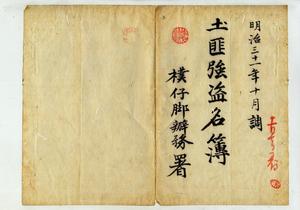 明治三十一年十月調
土匪強盗名簿
樸仔脚辦務署